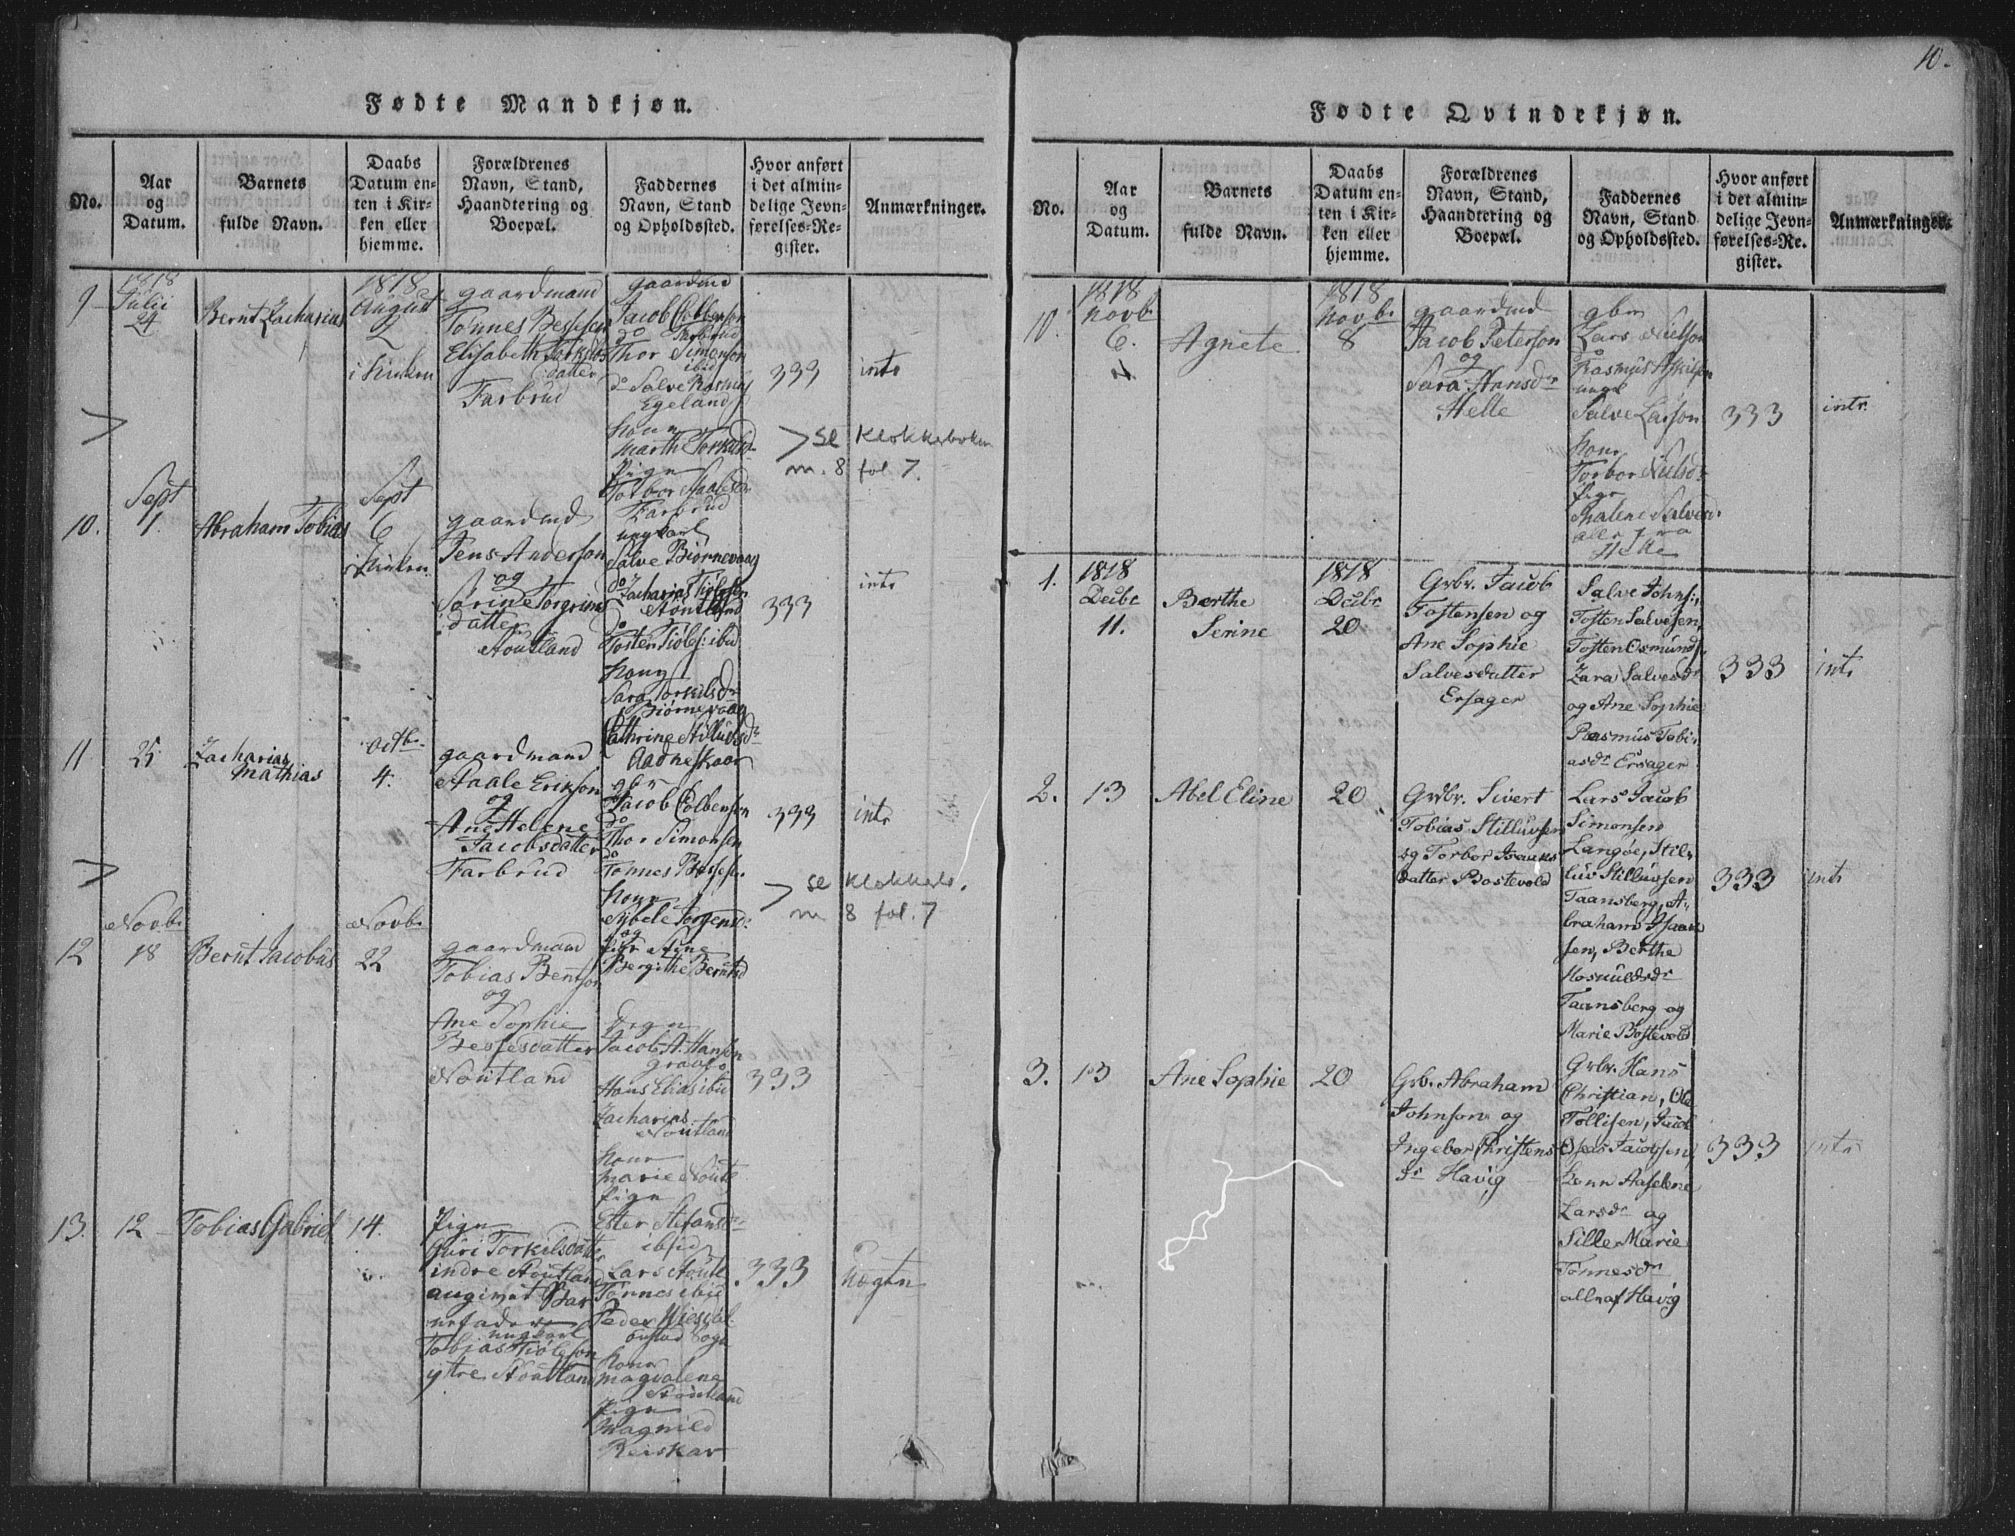 10.
Fødte Mandkjøn.
No.
Aar
og
Datum.
Barnets
fulde Navn.
Daabs
Datum en-
ten i Kir-
ken eller
hjemme.
Forældrenes
Navn, Stand,
Haandtering og
Boepæl.
Faddernes
Navn, Stand
og Opholdssted.
Hvor anført
i det almin-
delige Jevn-
førelses-Re-
gister.
Anmærkninger.
9
1818
Julii
24
Bernt Zacharias
1818
August
2
i Kirken
gaardmand
Tønnes Bessesen
Elisabeth Torkilds
datter
Farbrud
gaardmd
Jacob Colbenson
do Farbrud
Thor Simonson
ibid
do Salve Rasmus
Egeland
konen
Marth Torkild
Pigen
Torbor
Farbrud
333
intr
> se Klokkerboken
m. 8 fol. 7.
10.
Sept
1.
Abraham Tobias
Sept
6
i Kirken
gaardmd
Jens Anderson
og
Sørine Torgrims
datter
Noutland
ungkarl
Salve Biørnevaag
do Zacharias Tiølsen
Noutland
do
Tosten Tiøls: ibid
kong
Sara Torkilsdr
Biørnevaag
Cathrine Stilufsdr
Aadneskaar
333
intr
11
25
Zacharias
Mathias
Octb.
4.
gaardmand
Staale Erikson
og
Ane Helene
Jacobsdatter
Farbrud
gbr
Jacob Colbensen
do
Thor Simonsen
do
Tønnes Bessese.
kong
Sybele Torgensd:
og
Pige Stine
Bergithe Berntsd
333
intr
> se Klokkerb.
m 8 fol. 7
12
Novb.
18
Bernt Jacobus
Novb.
22
gaardmand
Tobias Bentson
og
Ane Sophie
Bessesdatter
Noutland
Jacob A. Hansen
Hans Elias ibid
Zacharias
Noutland
kone
Marie Noutl
Pigen
Ester Stefansdr
ibsid
333
13.
12
Tobias Gabriel
14.
Pigen
Guri Torkilsdatter
indre Noutland
angivet Bar
nefader
ungkarl
Tobias Tiølsson
ytre Noutland
Lars Noutl
Tønnes ibid
Peder
sogn
kone
Magdalene
Noutland
pigen
Magnild
Reiskar
333
Fødte Qvindekjøn.
No.
Aar
og
Datum.
Barnets
fulde Navn.
Daabs
Datum en-
ten i Kir-
ken eller
hjemme.
Forældrenes
Navn, Stand,
Haandtering og
Boepæl.
Faddernes
Navn, Stand
og Opholdssted.
Hvor anført
i det almin-
delige Jevn-
førelses-Re-
gister.
Anmærkninger.
10.
1818
Novb.
6.
Agnete
1818
Novb.
8
gaardmd
Jacob Peterson
og
Sara Hansdr
Helle
gbr
Lars Nielson
do
Rasmus Askilsen
ungk
Salve Larson
kone
Torbor Nielsdr
Pige
Thalene Salvesd.
alle fra
Helle
333
intr.
1.
1818
Decbr
11.
Berthe
Serine
1818
Decbr
20
Grbr. Jacob
Tostensen og
Ane Sophie
Salvesdatter
Ersager
Salve Johns:,
Tosten Salvesen,
Tosten Osmunds.
Zara Salvesdr
og Ane Sophie
Rasmus Tobi-
asdr Ersager
333
intr
2.
13
Abel Eline
20
Grdbr. Sivert
Tobias Stilluvsen
og Torbor Isaaks
datter Bostevold
Lars Jacob
Simonsen
Langøe, Stil-
luv Stilluvsen
Taansberg, A-
braham Isaak
sen, Berthe
Hosvuldsdr
Taansberg og
Marie Bostevold
333
intr
3.
13
Ane Sophie
20
Grb. Abraham
Johnson og
Ingebor Christens
dr Havig
Grbr. Hans
Christian, Ole
Tollisen, Jacob
Oseas Jacobsen,
Konn Aaselene
Larsdr og
Sille Marie
Tønnesdr
alle af Havig
333
intr